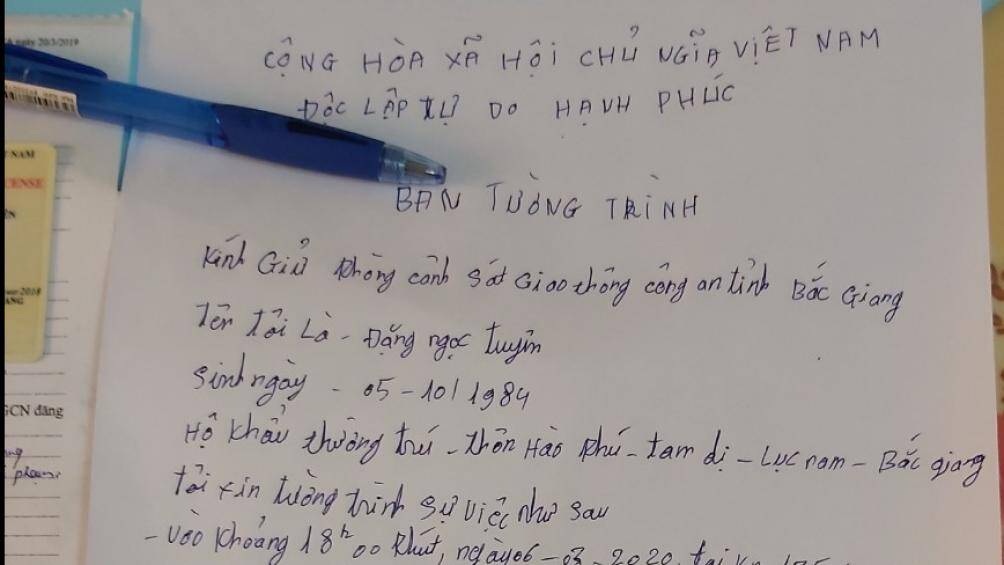 ngày 20/3/2019
CỘNG HÒA XÃ HỘI CHỦ NGĨA VIỆT NAM
ĐỘC LẬP TỰ DO HẠNH PHÚC
NAM
BẢN TƯỜNG TRÌNH
Kính Giử Phòng cảnh sát Giao thông công an tỉnh Bắc Giang
Tên Tôi Là - Đặng ngọc tuyên
sinh ngày - 05-10/1984
GCN đăng
Hộ khẩu thường trú - thôn Hào Phú - tam dị - Lục nam - Bắc giang
Tôi xin tường trình sự việc như sau
- Vào khoảng 18h 00 Phút, ngày 06-03-2020 tại